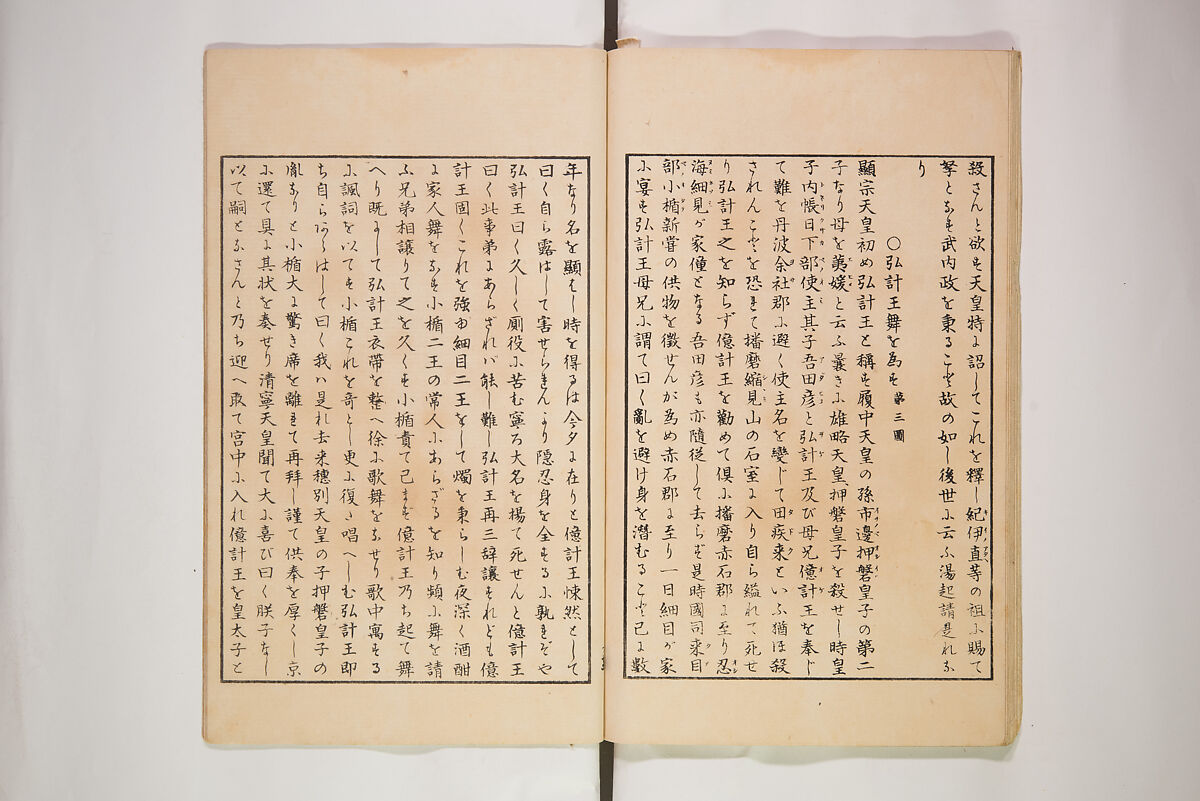 殺さんと欲す天皇特に詔してこれを釋し紀伊直等の祖に賜て
拏となす武内政を秉ること故の如し後世に云ふ湯起請是れな
り
〇弘計王舞を為す 第三圖
顯宗天皇初め弘計王と稱す履中天皇の孫市邊押磐皇子の第二
子なり母を荑媛と云ふ曩きに雄略天皇押磐皇子を殺せし時皇
子内帳日下部使主其子吾田彦と弘計王及び母兄億計王を奉じ
て難を丹波余社郡に避く使主名を變じて田疾来といふ猶ほ殺
されんことを恐れて播磨縮見山の石室に入り自ら縊れて死せ
り弘計王之を知らず億計王を勸めて倶に播磨赤石郡に至り忍
海細見が家僮となる吾田彦も亦隨従して去らず是時國司来目
部小楯新嘗の供物を徴せんが為め赤石郡に至り一日細目が家
に宴す弘計王母兄に謂て曰く亂を避け身を潜むること已に數
年なり名を顯はし時を得るは今夕に在りと億計王悚然として
曰く自ら露はして害せられんより隠忍身を全するに孰れぞや
弘計王曰く久しく厠役に苦む寧ろ大名を揚て死せんと億計王
曰く此事弟にあらざれバ能し難し弘計王再三辞讓すれども億
計王固くこれを強ゆ細目二王をして燭を秉らしむ夜深く酒酣
に家人舞をなす小楯二王の常人にあらざるを知り頻に舞を請
ふ兄弟相讓りて之を久くす小楯責て已まず億計王乃ち起て舞
へり既にして弘計王衣帶を整へ徐に歌舞をなせり歌中寓する
に諷詞を以てす小楯これを奇とし更に復た唱へしむ弘計王即
ち自らあらはして曰く我ハ是れ去来穂別天皇の子押磐皇子の
胤なりと小楯大に驚き席を離れて再拜し謹て供奉を厚くし京
に還て具に其状を奏せり清寧天皇聞て大に喜び曰く朕子なし
以て嗣となさんと乃ち迎へ取て宮中に入れ億計王を皇太子と